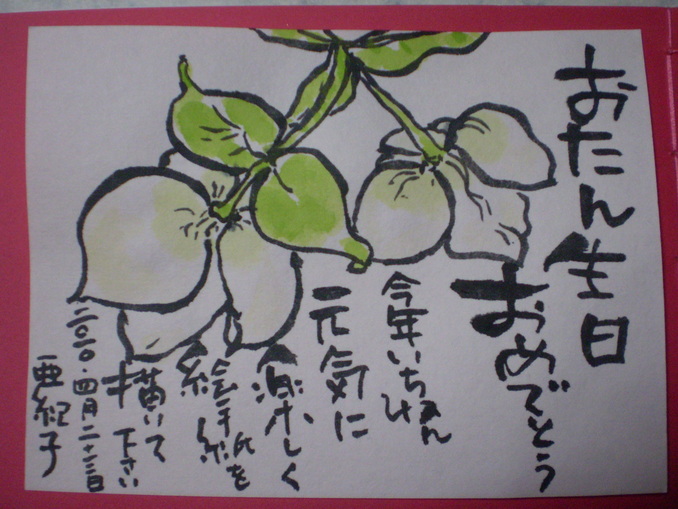 おたん生日
おめでとう
今年いちねん
元気に
楽しく
絵手紙を
描いて
下さい
二〇一〇・四月二十二日
亜紀子